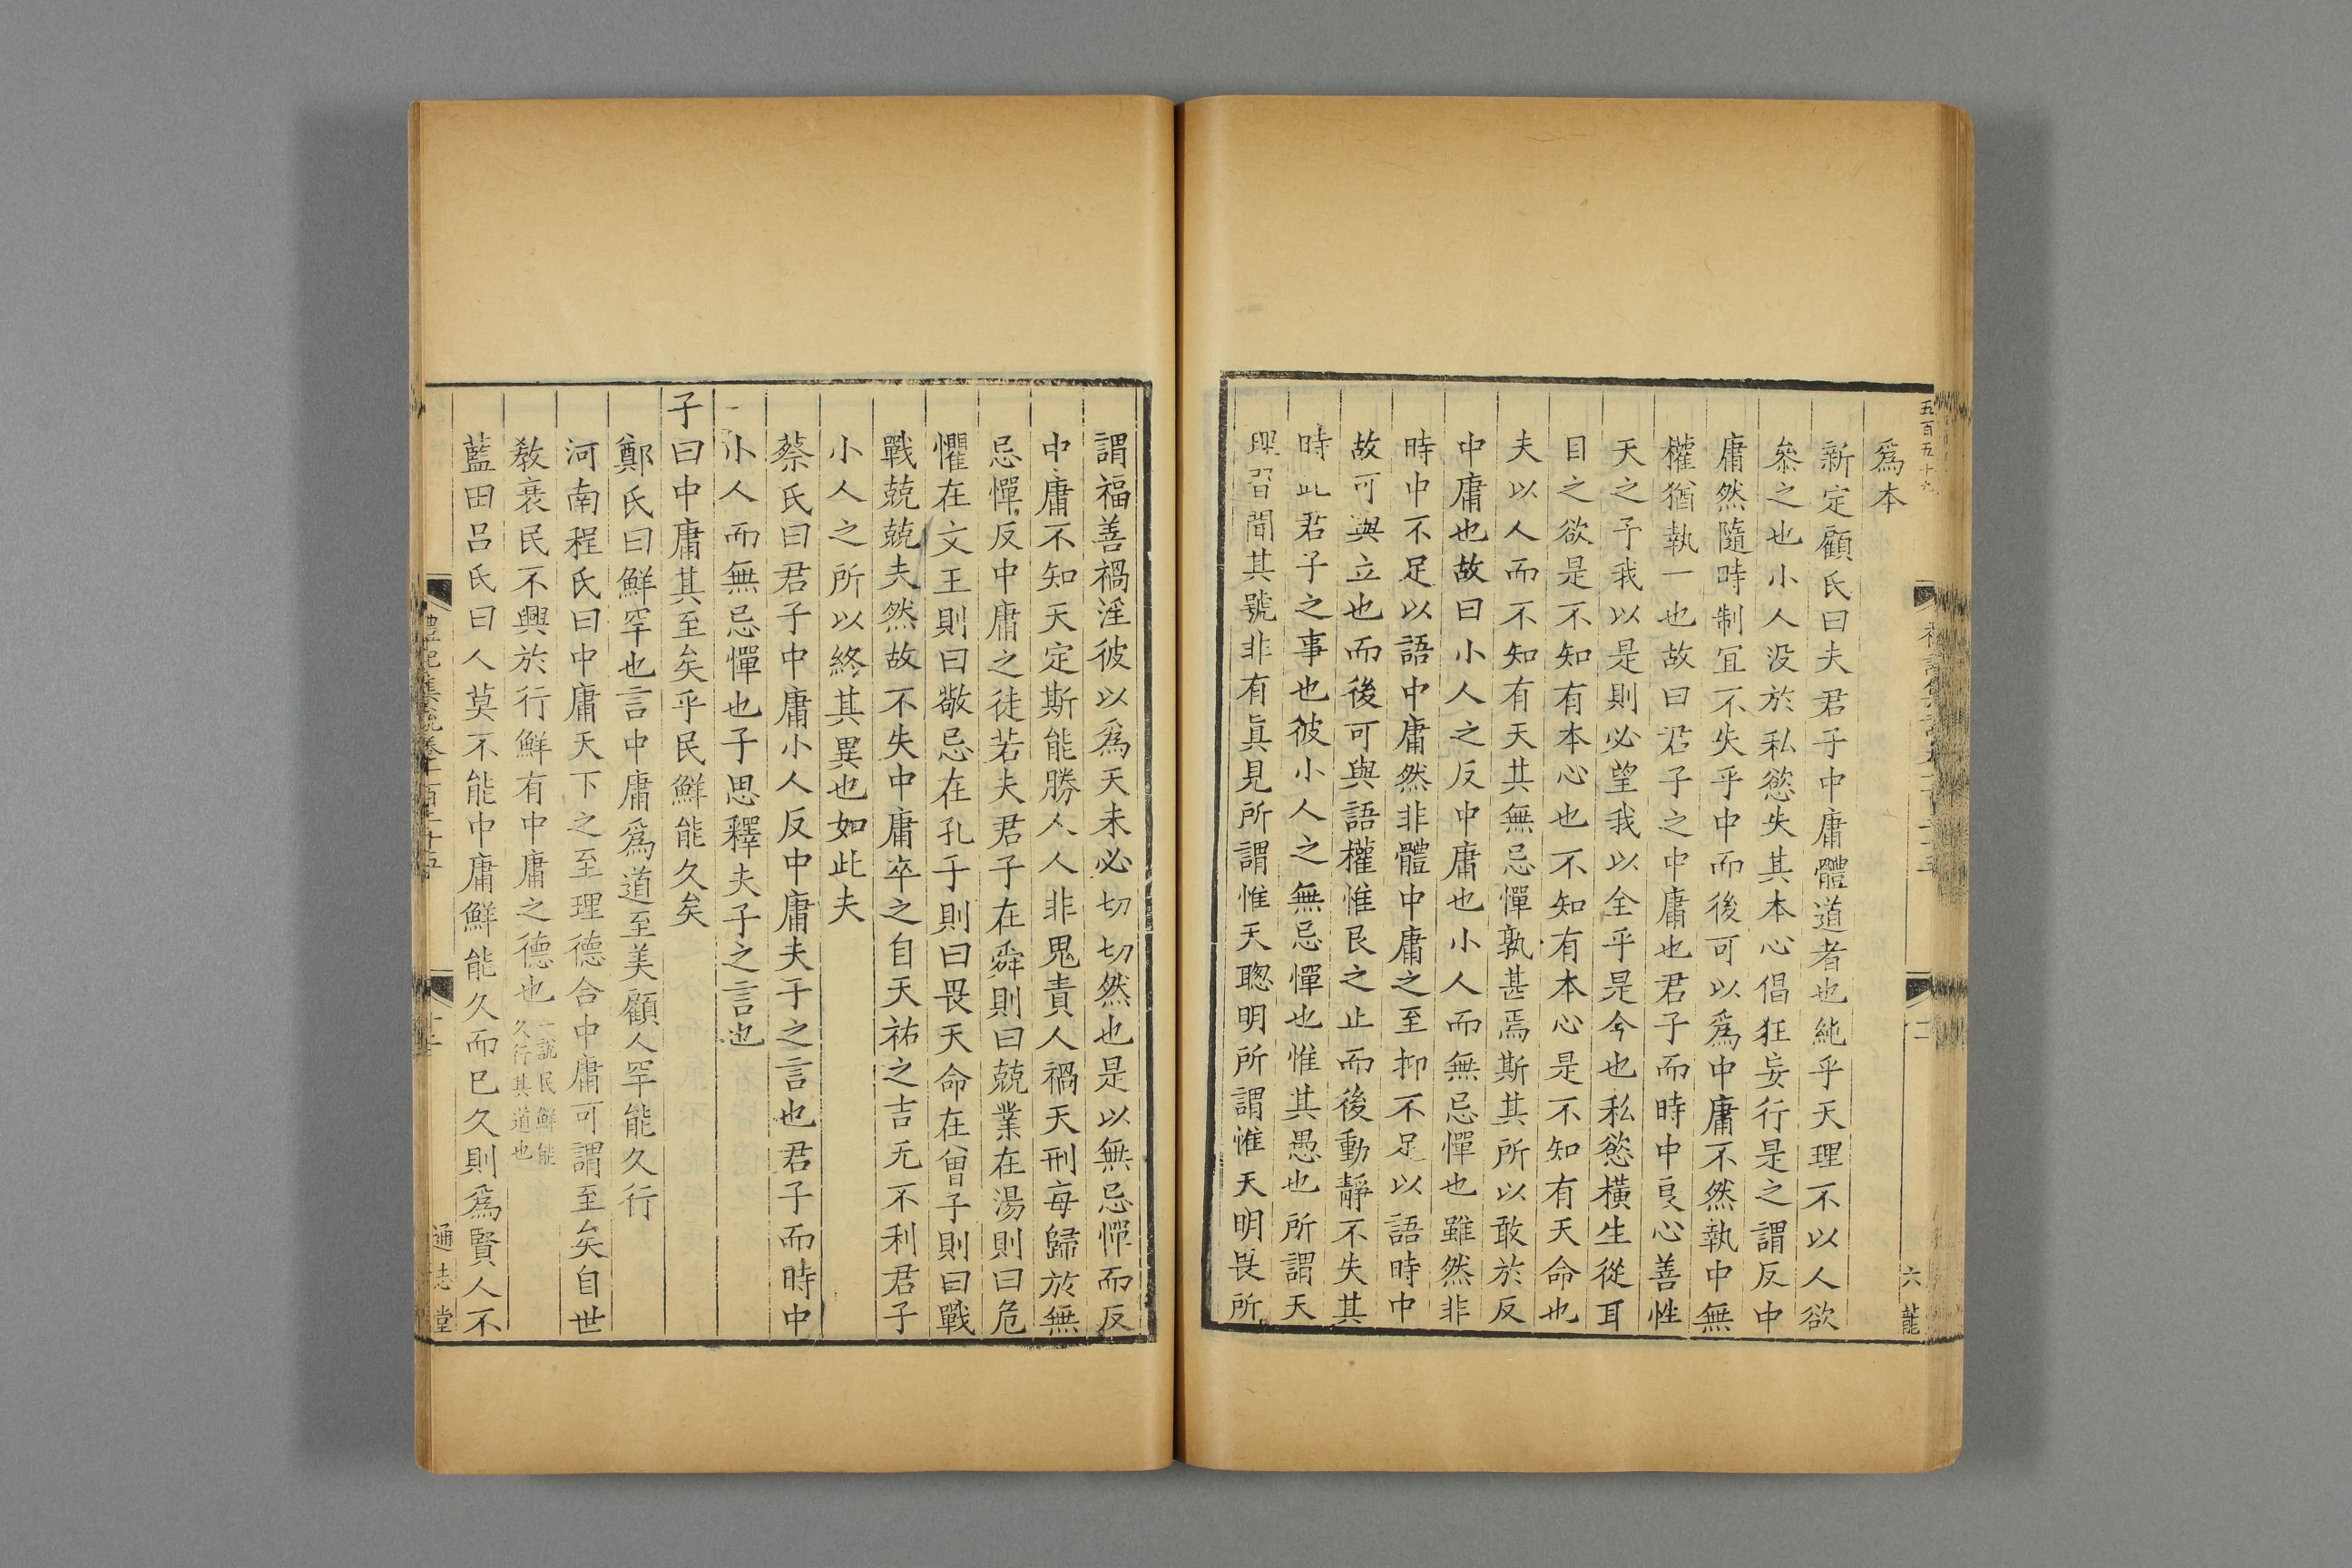 五百五十九
爲本
新定顧氏曰夫君子中庸體道者也純乎天理不以人欲
叅之也小人没於私慾失其本心倡狂妄行是之謂反中
庸然隨時制宜不失乎中而後可以爲中庸不然執中無
權猶執一也故曰君子之中庸也君子而時中良心善性
天之予我以是則必望我以全乎是今也私慾横生從耳
目之欲是不知有本心也不知有本心是不知有天命也
夫以人而不知有天其無忌憚孰甚焉斯其所以敢於反
中庸也故曰小人之反中庸也小人而無忌憚也雖然非
時中不足以語中庸然非體中庸之至抑不足以語時中
故可與立也而後可與語權惟艮之止而後動靜不失其
時此君子之事也彼小人之無忌憚也惟其愚也所謂天
與習聞其號非有眞見所謂惟天聰明所謂惟天明畏所
六
二
謂福善禍淫彼以爲天未必切切然也是以無忌憚而反
中庸不知天定斯能勝人人非鬼責人禍天刑每歸於無
忌憚反中庸之徒若夫君子在舜則曰兢業在湯則曰危
懼在文王則曰敬忌在孔子則曰畏天命在曾子則曰戰
戰兢兢夫然故不失中庸卒之自天祐之吉无不利君子
小人之所以終其異也如此夫
蔡氏曰君子中庸小人反中庸夫子之言也君子而時中
小人而無忌憚也子思釋夫子之言也
子曰中庸其至矣乎民鮮能久矣
鄭氏曰鮮罕也言中庸爲道至美顧人罕能久行
河南程氏曰中庸天下之至理德合中庸可謂至矣自世
敎衰民不興於行鮮有中庸之德也一說民鮮能久行其道也
藍田呂氏曰人莫不能中庸鮮能久而已久則爲賢人不
禮記集說卷一百二十五
通志堂